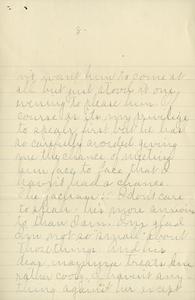 8.
n't want him to come at
all but just stood it one
evening to please him. Of
course its my privilege
to speak first but he has
so carefully avoided giving
me the chance of meeting
him face to face that I
haven't had a chance.
I don't care
to speak. he's more anxious
to than I am. Am glad
I'm not so about
those things. And his
dear mamma treats me
rather cooly. I haven't any
thing against her except